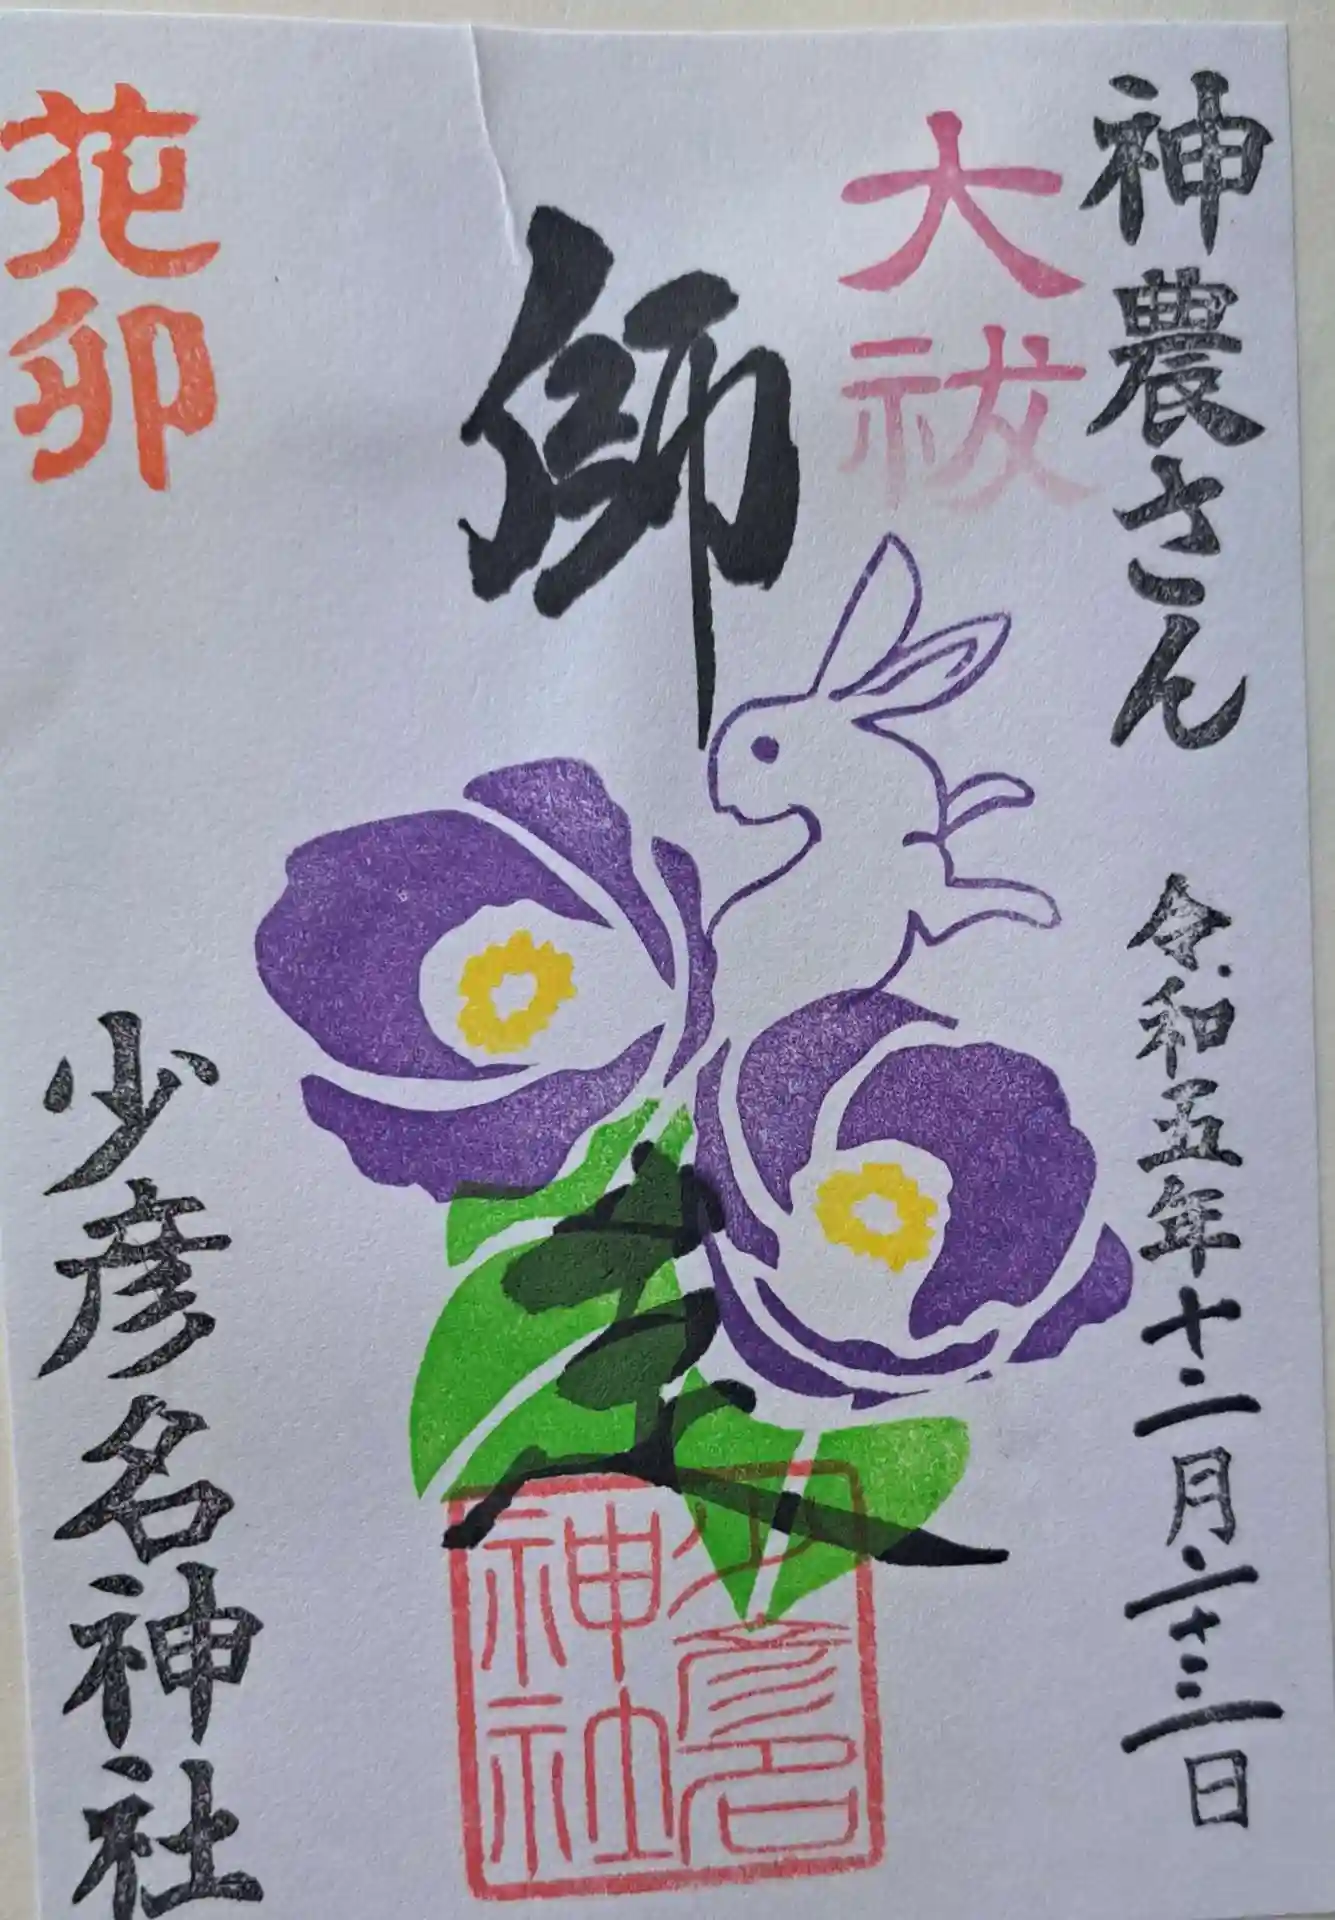 神農さん 令和五年十二月二十三日
大祓
師走
花卯
少彦名神社
少彦名
神社